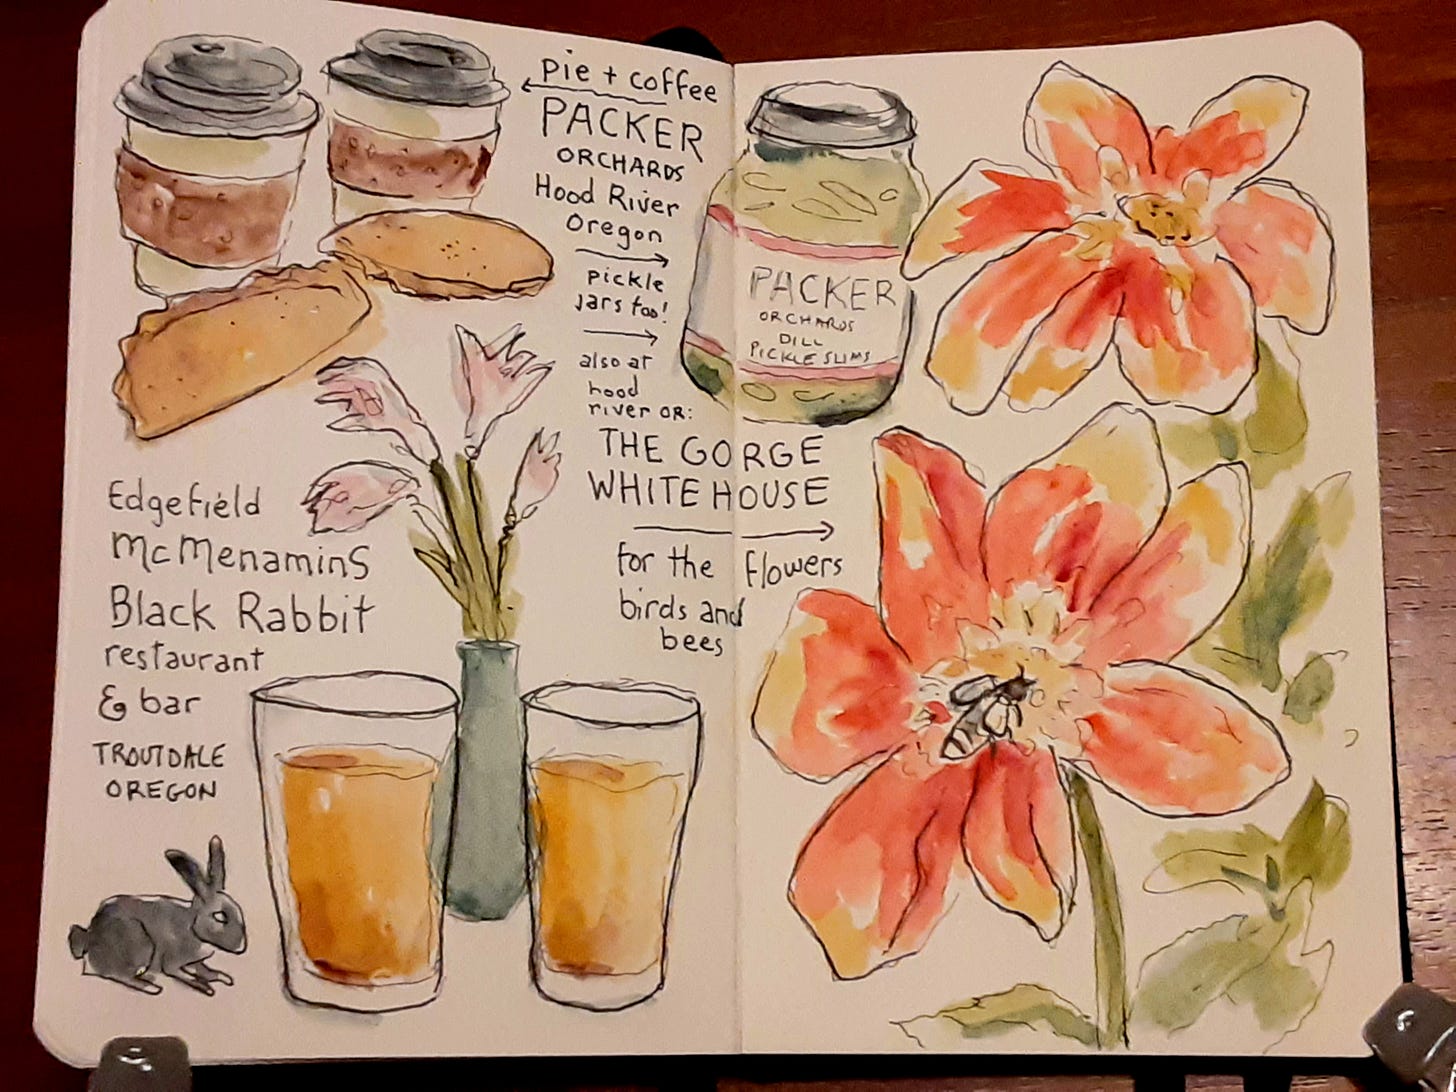 pie + coffee
PACKER
ORCHARDS
Hood River
Oregon
pickle
jars too!
also at
hood
river OR:
THE GORGE
WHITE HOUSE
for the flowers
birds and
bees
PACKER
ORCHARDS
DILL
PICKLE SLIMS
Edgefield
McMenamins
Black Rabbit
restaurant
& bar
TROUTDALE
OREGON